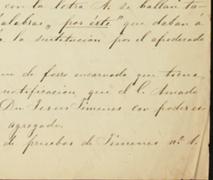 con la letra A. se hallan ta-
labras, "por éste" que daban á
á la sustitucion por el apoderado
de forro encarnado que tiene
notificacion que el C. Amado
Dn Jesus Jimenes con poderes
agregado.
de pruebas de Jimenes nº 6.